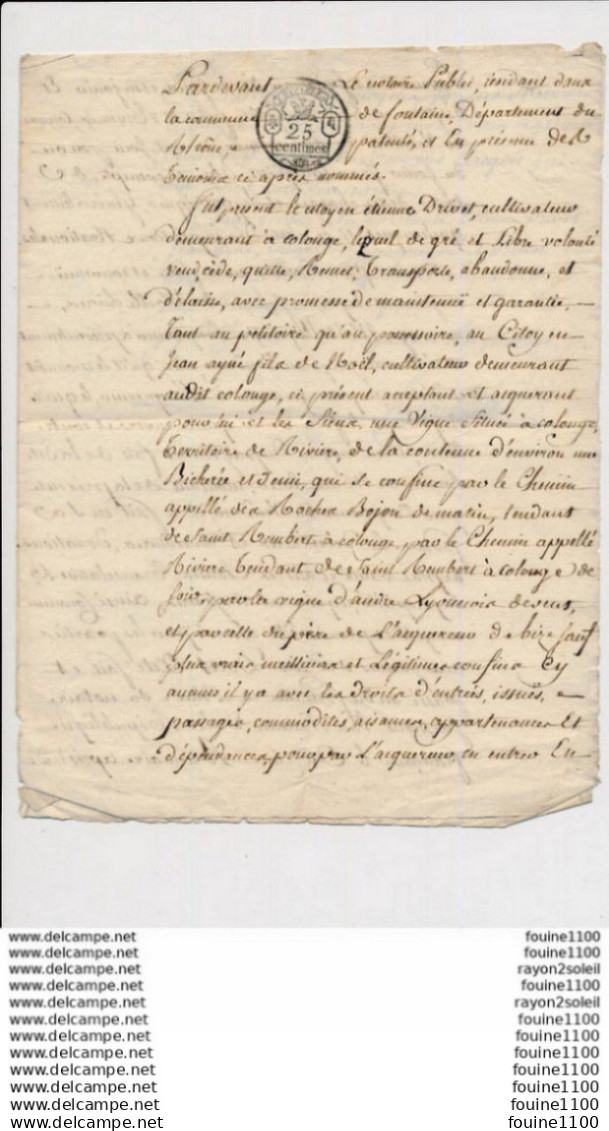 Pardevant Le notaire Public, rendant dans
la commune de fontaine, Département du
Rhône, patenté, et En présence de
Temoins ci après nommés.
25
centimes
fut présent le citoyen étienne Drivet, cultivateur
demeurant à colonge, lequel de gré et Libre volonté
vend, cède, quitte, Remet, Transporte, abandonne, et
délaisse, avec promesse de maintenüe et garantie,
tant au petitoire qu'au possessoire, au Citoyen
Jean ayné fils de Noël, cultivateur demeurant
audit colonge, ci présent aceptant et aiquerant
pour lui et les Siens, une Vigne Située à colonge,
territoire de Rivière, de la contenue d'environ une
Bicherée et Demi, qui se confine par le Chemin
appellé des Roches Bojou de matin, tendant
de Saint Rambert à colonge, par le Chemin appellé
Rivière tendant de Saint Rambert à colonge de
soir, par la vigne d'andré Lyonnois de vent,
et par celle du père de L'aiquereur de bize sauf
plus vrais meilleurs et Légitimes confins Cy
aucuns il y a avec les droits d'entrées, issües,
passages, commodités, aisances, appartenances Et
dépendances, pour par L'aiquereur en entrer En
www.delcampe.net fouine1100
www.delcampe.net fouine1100
www.delcampe.net rayon2soleil
www.delcampe.net fouine1100
www.delcampe.net rayon2soleil
www.delcampe.net fouine1100
www.delcampe.net fouine1100
www.delcampe.net fouine1100
www.delcampe.net fouine1100
www.delcampe.net fouine1100
www.delcampe.net fouine1100
www.delcampe.net fouine1100